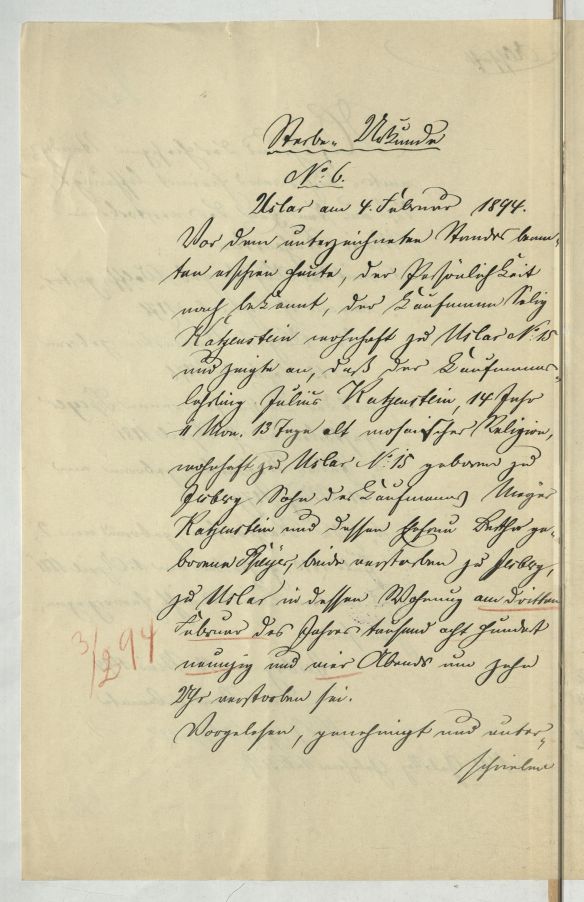 Sterbe-Urkunde
No 6.
Uslar am 4. Februar 1894.
Vor dem unterzeichneten Standesbeam-
ten erschien heute, der Persönlichkeit
nach bekannt, der Kaufmann Selig
Katzenstein wohnhaft zu Uslar No 15
und zeigte an, daß der Kaufmanns-
lehrling Julius Katzenstein, 14 Jahr
11 Mon. 13 Tage alt mosaischer Religion,
wohnhaft zu Uslar No 15 geboren zu
Sohn des Kaufmanns Meyer
Katzenstein und dessen Ehefrau Bertha ge-
borene beide verstorben zu
zu Uslar in dessen Wohnung am dritten
Februar des Jahres tausend acht hundert
neunzig und vier Abends um zehn
Uhr verstorben sei.
Vorgelesen, genehmigt und unter-
schrieben
3/2 94